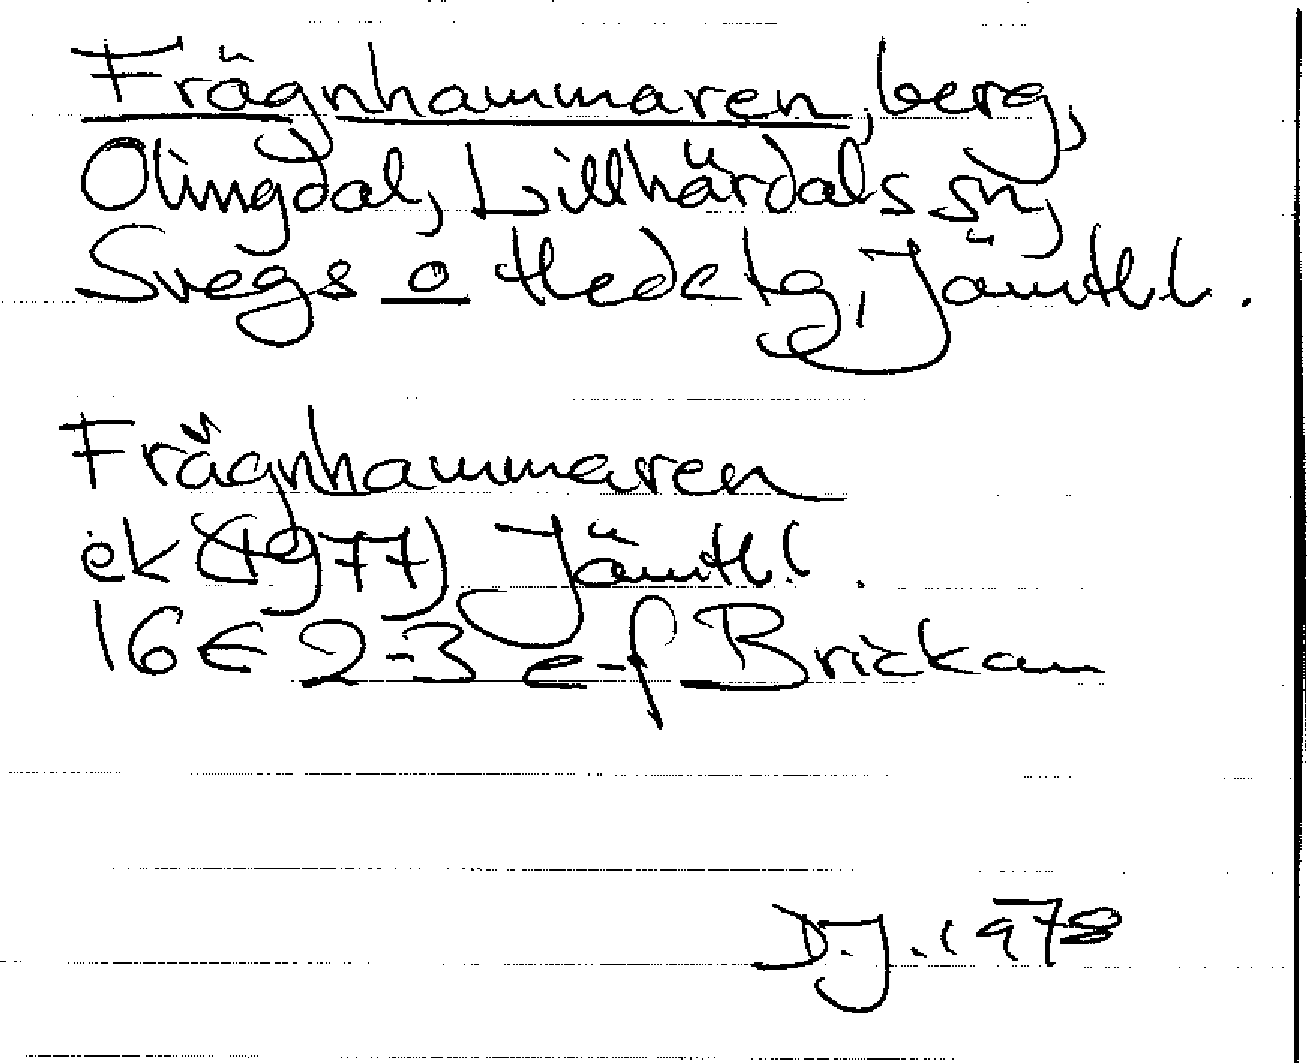 Frägnhammaren, berg,
Olingdal, Lillhärdals sn,
Svegs o Hede tg, Jämtl l.
Frägnhammaren
ek (1977) Jämtl l.
16E 2-3 e-f Brickan
D.J. 1978